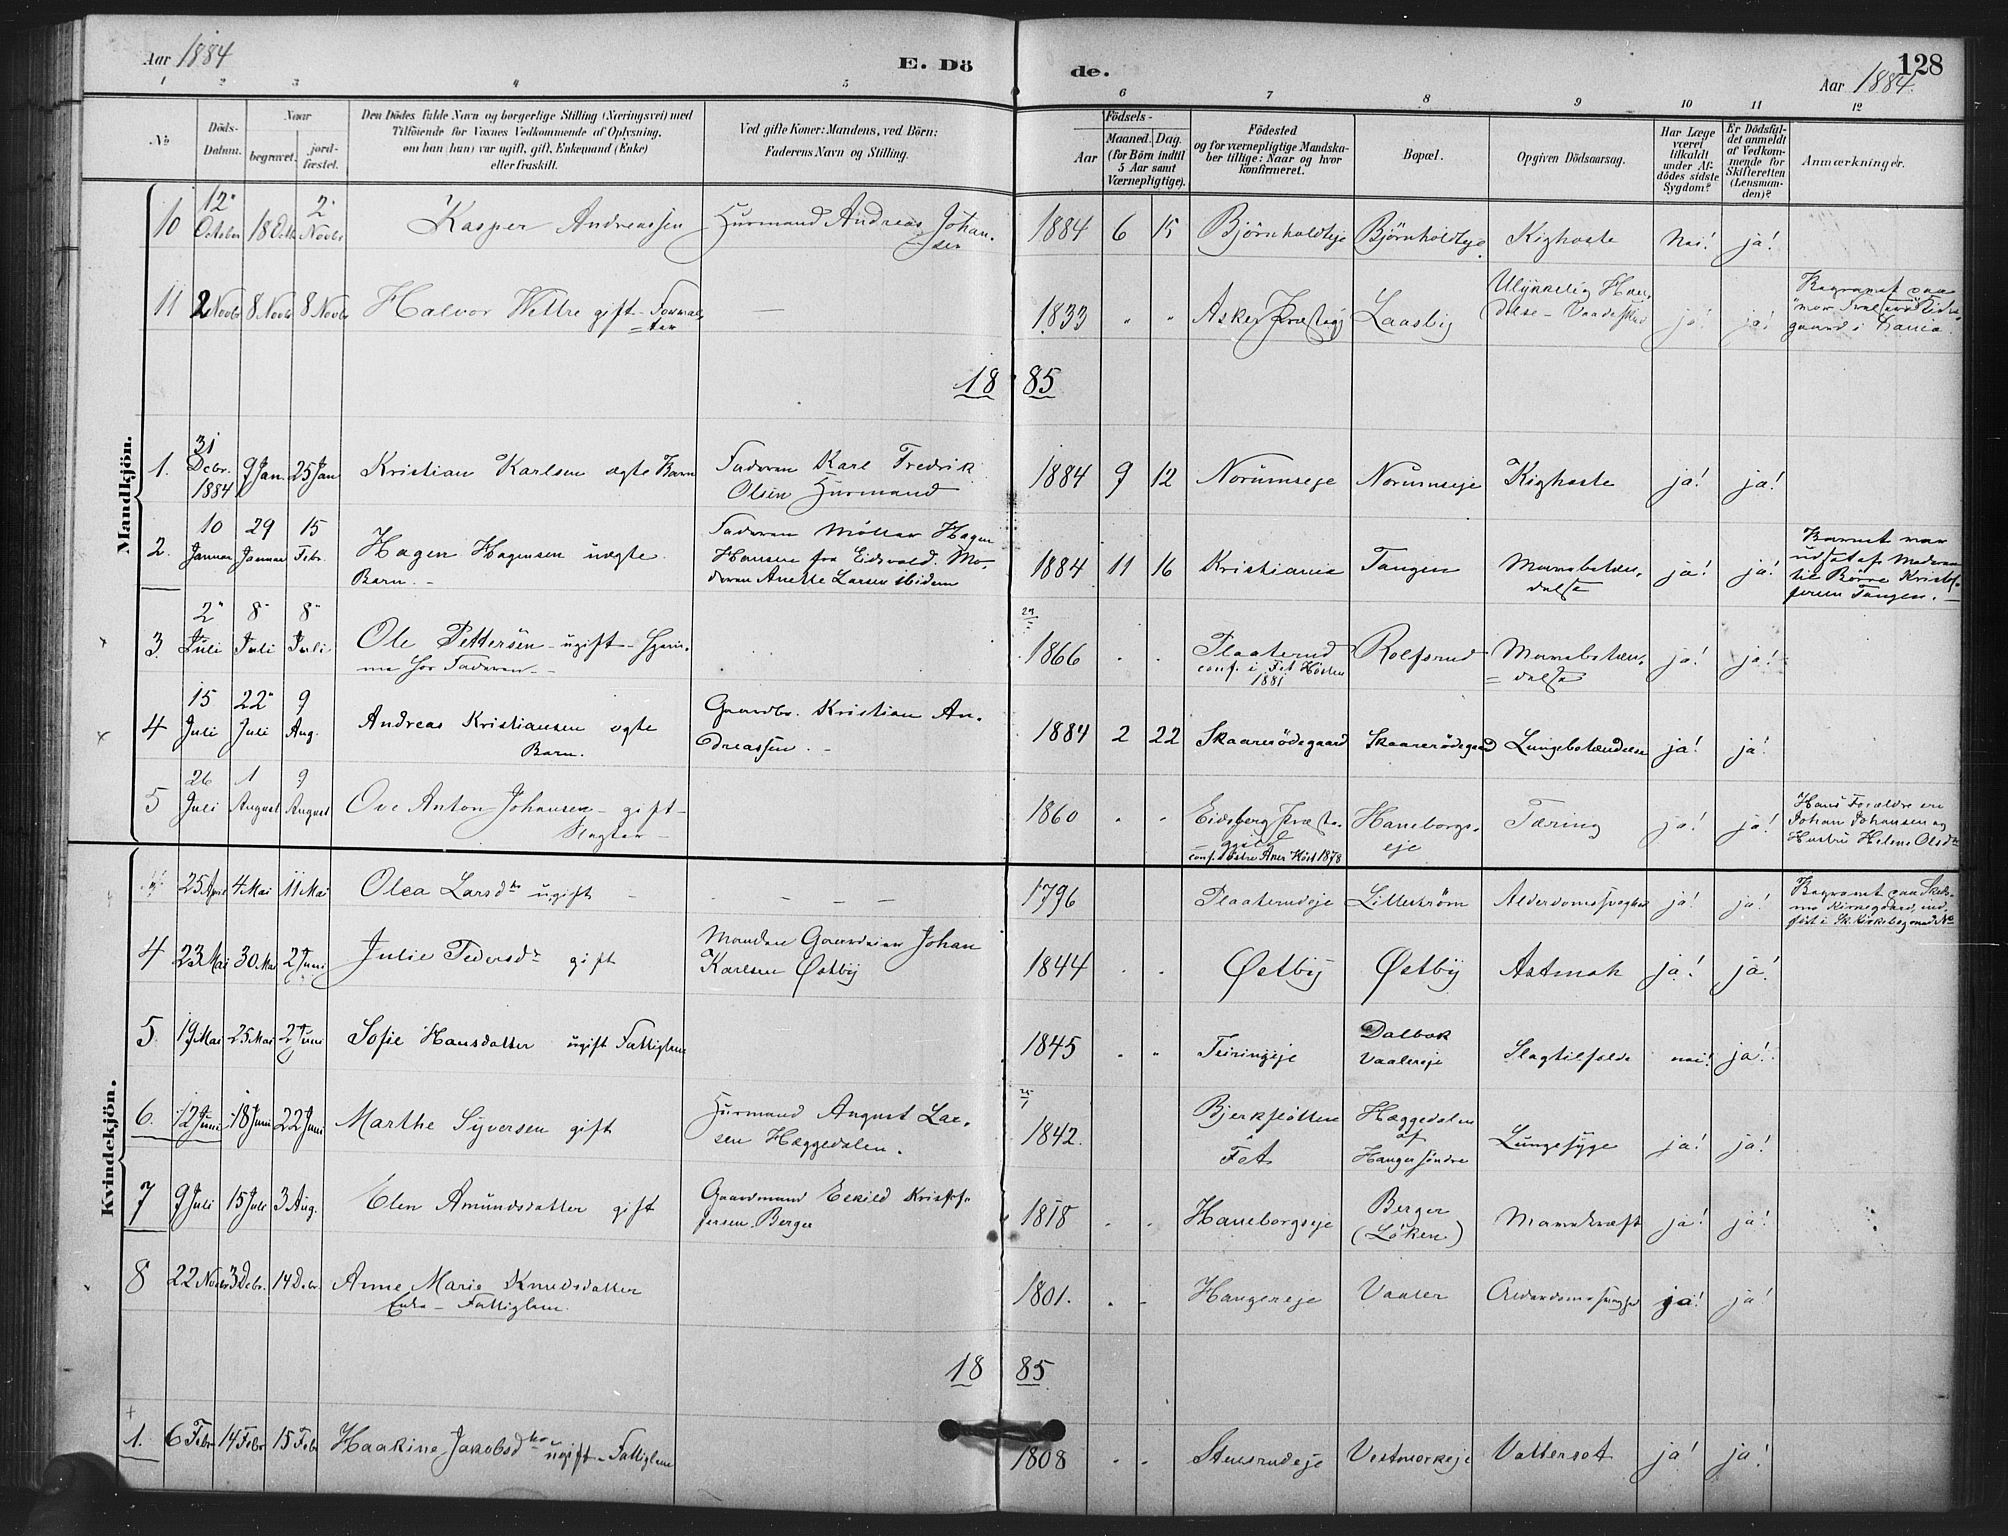 Aar 1884 E. Döde. 128
Aar 1884.
1 2 3 4 5 6 7 8 9 10 11 12
No
Döds-
Datum.
Naar
begravet.
jord-
fæstet.
Den Dödes fulde Navn og borgerlige Stilling (Næringsvei) med
Tilföiende for Voxnes Vedkommende af Oplysning,
om han (hun) var ugift, gift, Enkemand (Enke)
eller fraskilt.
Ved gifte Koner: Mandens, ved Börn:
Faderens Navn og Stilling.
Födsels-
Aar
Maaned. Dag.
(for Börn indtil
5 Aar samt
Værnepligtige).
Födested
og for værnepligtige Mandska-
ber tillige: Naar og hvor
konfirmeret.
Bopæl.
Opgiven Dödsaarsag.
Har Læge
været
tilkaldt
under Af-
dödes sidste
Sygdom?
Er Dödsfal-
det anmeldt
af Vedkom-
mende for
Skifteretten
(Lensman-
den)?
Anmærkninger.
Mandkjön.
10 12 October 18 Octb 2 Novbr Kasper Andreassen Husmand Andreas Johan-
sen 1884 6 15 Bjørnholdteje Bjørnholdteje Kighoste Nei! ja!
11 2 Novbr 8 Novbr 8 Novbr Halvor Wettre gift - Forval-
ter — 1833 " " Asker Præstegj Laasby Ulykkelig Hæn-
delse - Vaadeskud ja! ja! Begravet paa
"Vor Frelsers" Kirke-
gaard i
18 85
1. 31 Decbr. 1884 9 Jan. 25 Jan Kristian Karlsen ægte Barn Faderen Karl Fredrik
Olsen Husmand 1884 9 12 Norumseje Norumseje Kighoste ja! ja!
2. 10 Januar 29 Januar 15 Febr. Hagen Hagensen uægte
Barn. - Faderen Møller Hagen
Hansen fra Eidsvold. Mo-
deren Anette Larsen ibidem 1884 11 16 Kristiania Tangen Mavebetæn-
delse ja! ja! Barnet var
udsat af Moderen
til Børre Kristof-
fersen Tangen. -
3. 2 Juli 8 Juli 8 Juli Ole Pettersen - ugift - Hjem-
me hos Faderen - 1866 . . Plaaterud
conf. i Fet Høsten
1881 Rolfsrud Mavebetæn-
delse ja! ja!
4 15 Juli 22 Juli 9 Aug. Andreas Kristiansen ægte
Barn. Gaardbr. Kristian An-
dreassen. - 1884 2 22 Skaarerødegaard Skaarerødegaard Lungebetændelse ja! ja!
5 26 Juli 1 August 9 August Ove Anton Johansen - gift -
Slagter - 1860 " " Eidsberg Præste-
gjeld
conf. i Østre Aker Høst 1878 Haneborgs-
eje Tæring ja! ja! Hans Forældre ere
Johan Johansen og
Hustru Helene Olsdtr
Kvindekjön.
25 April 4 Mai 11 Mai Olea Larsdtr ugift - 1796 Plaaterudeje Lillestrøm Alderdomssvaghed ja! ja! Begravet paa Skeds-
mo Kirkegaard, ind-
ført i Sk. Kirkebog
4 23 Mai 30 Mai 2 Juni Julie Pedersdtr gift Manden Gaardeier Johan
Karlsen Østby 1844 . . Østby Østby Astmah ja! ja!
5 19 Mai 25 Mai 2 Juni Sofie Hansdatter ugift Fattiglem 1845 . " Teiringeje Dalbak
Vaalereje Slagtilfælde nei! ja!
6. 12 Juni 18 Juni 22 Juni Marthe Syversen gift Husmand August Lar-
sen Hæggedalen. 1842. Bjerkesletten
i
Fet Hæggedalen
af
Hanger søndre Lungesyge ja! ja!
7 9 Juli 15 Juli 3 Aug. Elen Amundsdatter gift Gaardmand Eskild Kristof-
fersen Berger 1818 . . Haneborgseje Berger
(Løken) Mavekræft ja! ja!
8 22 Novbr 3 Decbr. 14 Decbr. Anne Marie Knudsdatter
Enke - Fattiglem. 1801. . . Hangereje Vaaler Alderdomssvaghed ja! ja!
18 85
1. 6 Febr 14 Febr 15 Febr Haakine Jakobsdtr ugift - Fattiglem 1808 . . Stensrudeje Vestvorkeje Vattersot ja! ja!